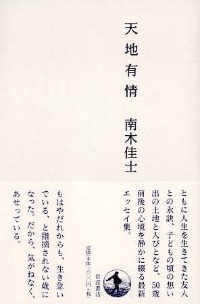 天地有情
南木佳士
ともに人生を生きてきた友人
との永訣、子どもの頃の想い
出の土地と人びとなど、50歳
前後の心境を静かに綴る最新
エッセイ集。
もはやだれからも、生き急い
でいる、と指摘されない歳に
なった。だから、気がねなく、
あせっている。
岩波書店